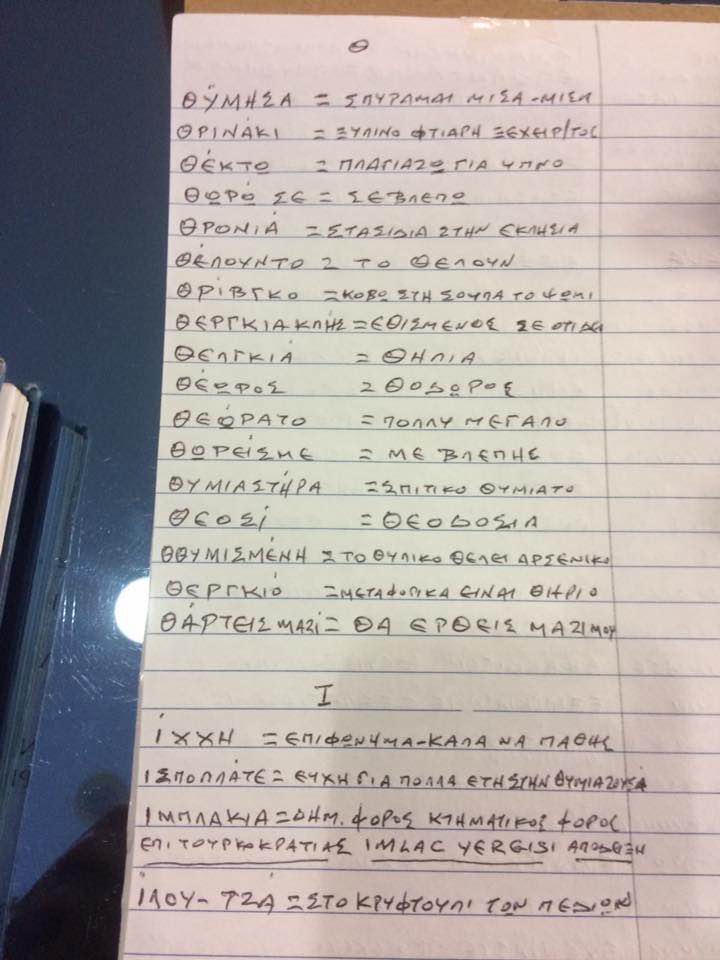 Θ
ΘΎΜΗΣΑ = ΣΠΥΡΑΜΑΙ ΜΙΣΑ-ΜΙΣΑ
ΘΡΙΝΆΚΙ = ΞΥΛΙΝΟ ΦΤΙΑΡΗ ΞΕΧΕΙΡ/ΤΟΣ
ΘΈΚΤΩ = ΠΛΑΓΙΑΖΩ ΓΙΑ ΥΠΝΟ
ΘΩΡΏ ΣΕ = ΣΕ ΒΛΕΠΩ
ΘΡΟΝΙΆ = ΣΤΑΣΙΔΙΑ ΣΤΗΝ ΕΚΛΗΣΙΑ
ΘΈΛΟΥΝΤΟ = ΤΟ ΘΕΛΟΥΝ
ΘΡΊΒΓΚΟ = ΚΟΒΩ ΣΤΗ ΣΟΥΠΑ ΤΟ ΨΩΜΙ
ΘΕΡΓΚΙΑΚΛΉΣ = ΕΘΙΣΜΕΝΟΣ ΣΕ
ΘΕΛΓΚΙΆ = ΘΗΛΙΑ
ΘΈΩΦΟΣ = ΘΟΔΩΡΟΣ
ΘΕΏΡΑΤΟ = ΠΟΛΛΥ ΜΕΓΑΛΟ
ΘΩΡΕΊΣΜΕ = ΜΕ ΒΛΕΠΗΣ
ΘΥΜΙΑΣΤΉΡΑ = ΣΠΙΤΙΚΟ ΘΥΜΙΑΤΟ
ΘΕΟΣΊ = ΘΕΟΔΟΣΙΑ
ΘΘΥΜΙΣΜΈΝΗ = ΤΟ ΘΥΛΙΚΟ ΘΕΛΕΙ ΑΡΣΕΝΙΚΟ
ΘΕΡΓΚΙΌ = ΜΕΤΑΦΟΡΙΚΑ ΕΙΝΑΙ ΘΗΡΙΟ
ΘΆΡΤΕΙΣ ΜΑΖΊ = ΘΑ ΕΡΘΕΙΣ ΜΑΖΙ ΜΟΥ
Ι
ΊΧΧΗ = ΕΠΙΦΩΝΥΜΑ-ΚΑΛΑ ΝΑ ΠΑΘΗΣ
ΙΣΠΟΛΛΆΤΕ = ΕΥΧΗ ΓΙΑ ΠΟΛΛΑ ΕΤΗ ΣΤΗΝ ΘΥΜΙΑΖΟΥΣΑ
ΙΜΠΛΑΚΙΑ = ΔΗΜ. ΦΟΡΟΣ ΚΤΗΜΑΤΙΚΟΣ ΦΟΡΟΣ
ΕΠΙ ΤΟΥΡΚΟΚΡΑΤΙΑΣ IMLAC VERGISI ΑΠΟΔΕΙΞΗ
ΊΛΟΥ-ΤΖΆ = ΣΤΟ ΚΡΥΦΤΟΥΛΙ ΤΩΝ ΠΕΔΙΩΝ